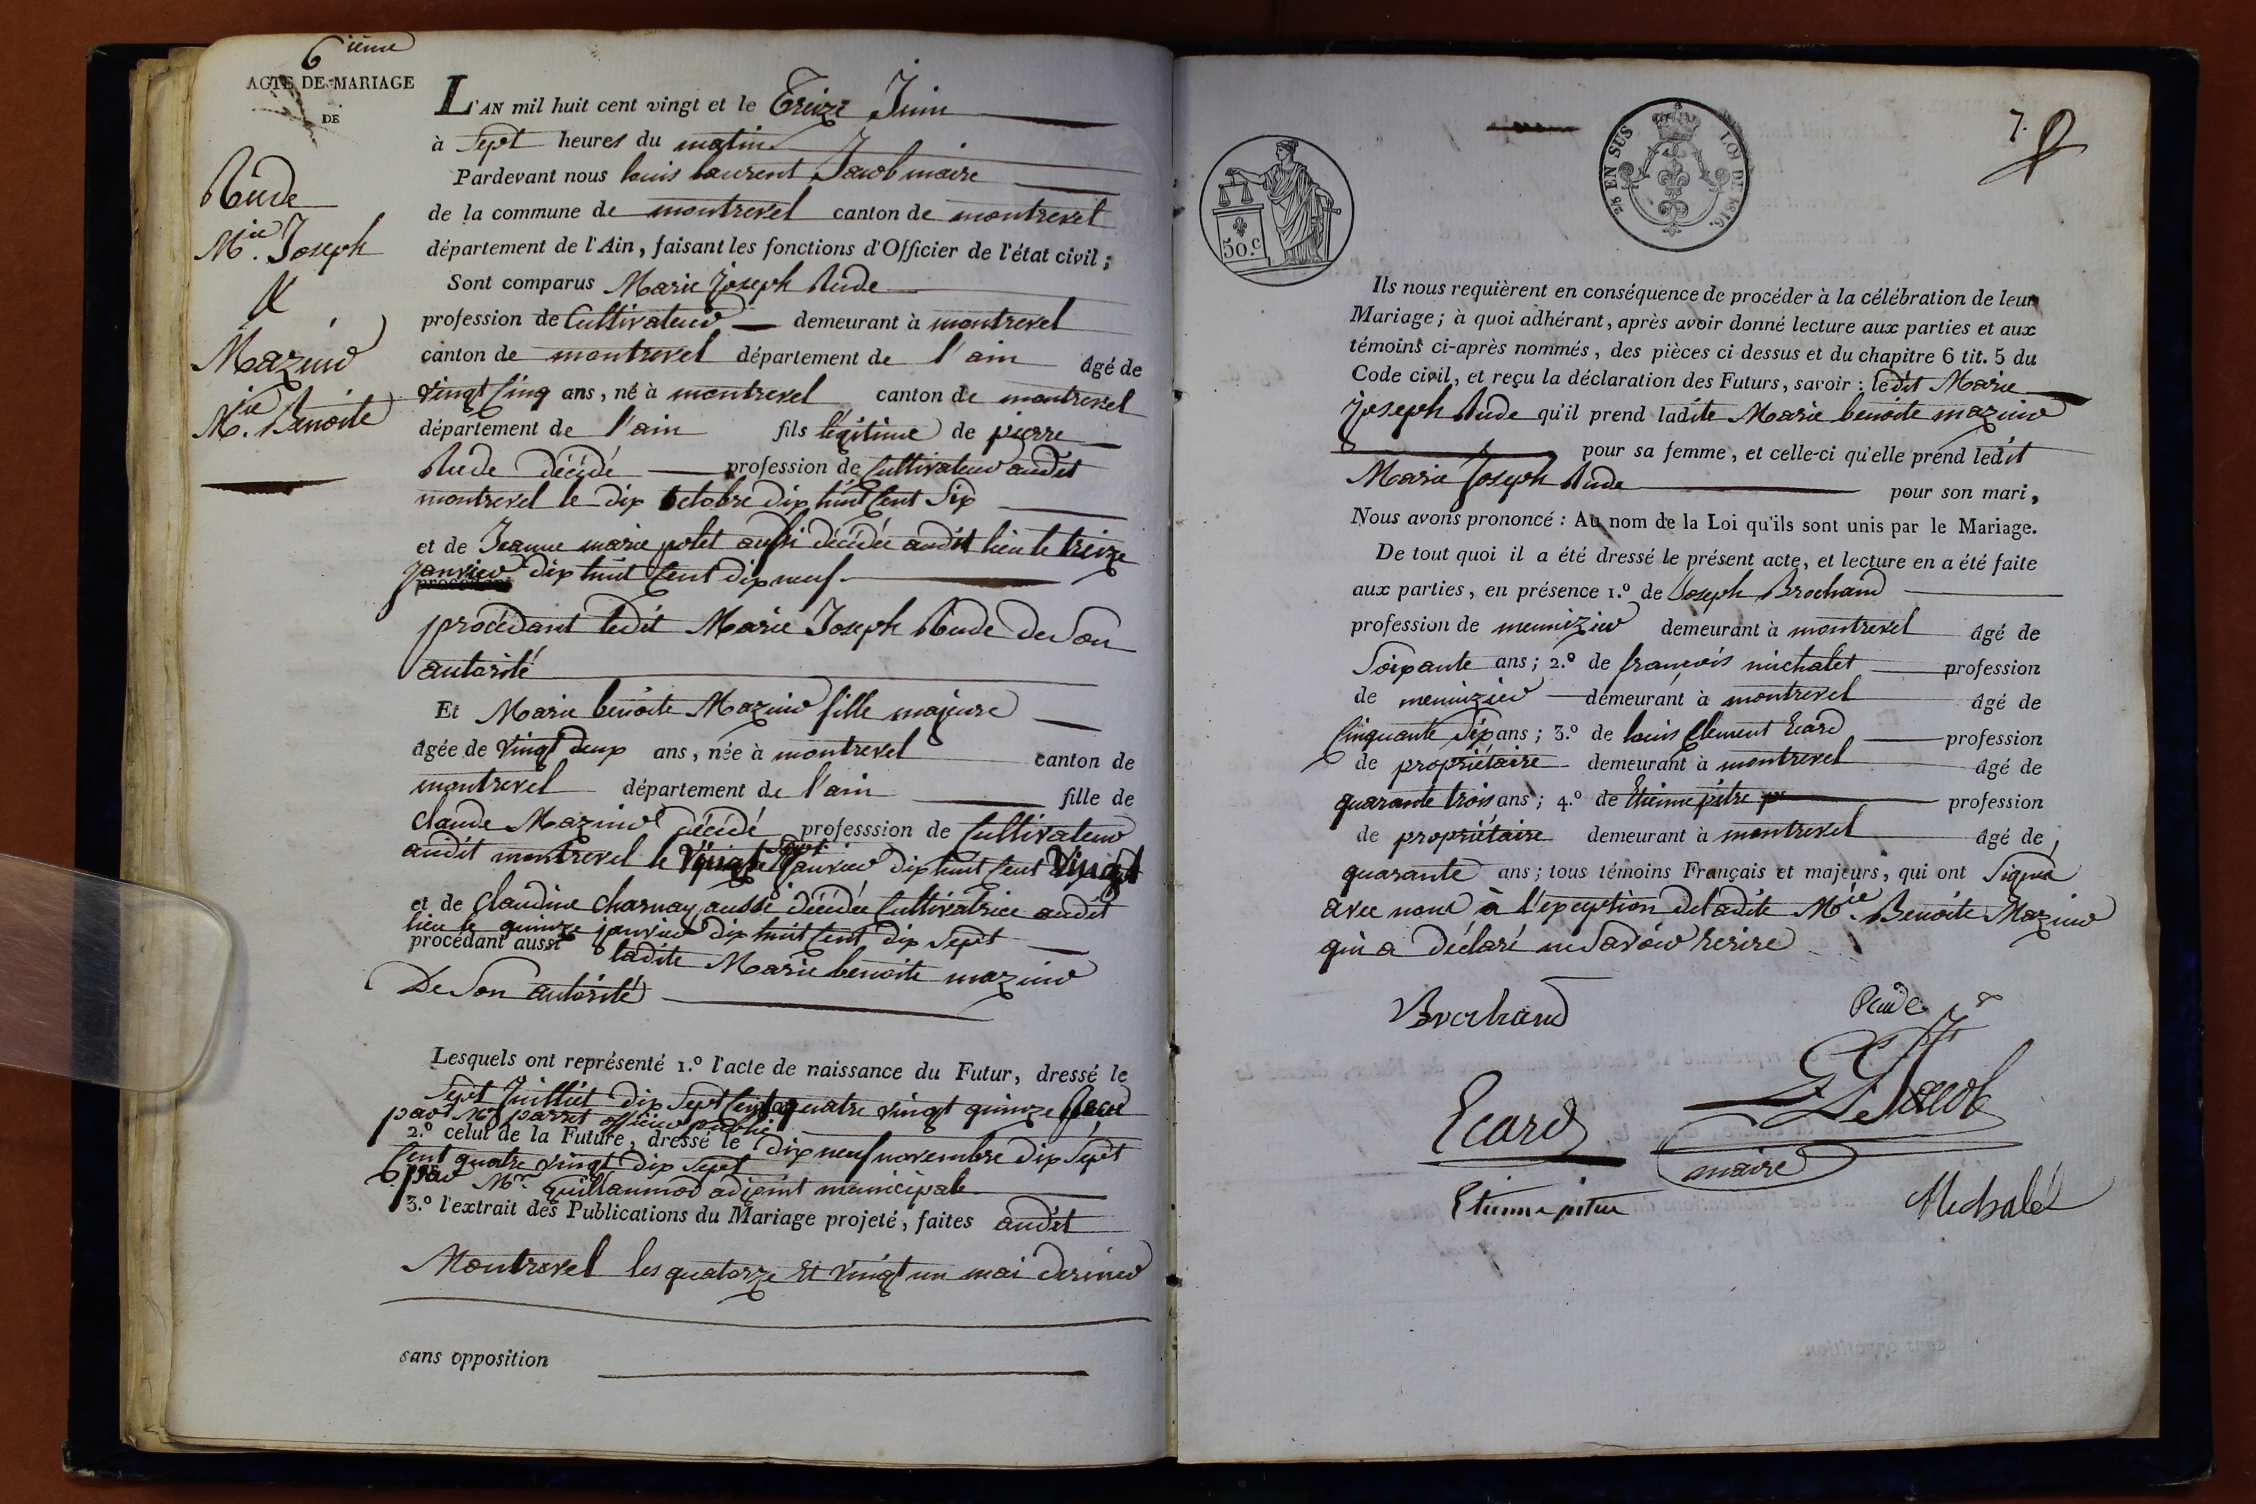 6ième
ACTE DE MARIAGE
DE
Rude
M.ie Joseph
&
Mazuir
M.ie Benoite
L'AN mil huit cent vingt et le Treize Juin
à Sept heures du matin
Pardevant nous louis laurent Jacob maire
de la commune de montrevel canton de montrevel
département de l'Ain, faisant les fonctions d'Officier de l'état civil;
Sont comparus Marie Joseph Rude
profession de Cultivateur demeurant à montrevel
canton de montrevel département de l'ain âgé de
vingt Cinq ans, né à montrevel canton de montrevel
département de l'ain fils légitime de pierre
Rude décédé profession de Cultivateur audit
montrevel le dix octobre dix huit Cent Six
et de Jeanne marie polet aussi décédée audit lieu le treize
janvier dix huit Cent dix neuf
procédant ledit Marie Joseph Rude de Son
autorité
Et Marie benoite Mazuir fille majeure
âgée de vingt deux ans, née à montrevel canton de
montrevel département de l'ain fille de
claude Mazuir décédé professsion de Cultivateur
audit montrevel le vingt sept janvier dix huit Cent vingt
et de claudine charnay aussi décédée Cultivatrice audit
lieu le quinze janvier dix huit Cent dix Sept
procédant aussi ladite Marie benoite mazuir
De Son autorité
Lesquels ont représenté 1.º l'acte de naissance du Futur, dressé le
Sept Juilliet dix Sept Cent quatre vingt quinze Reçu
par Mr parret officier public
2.º celui de la Future, dressé le dix neuf novembre dix Sept
Cent quatre vingt dix Sept
par Mr. Guillaumod adjoint municipale
3.º l'extrait des Publications du Mariage projeté, faites audit
Montrevel les quatorze Et vingt un mai dernier
sans opposition
50.c
25 EN SUS LOI DE 1816.
7.
Ils nous requièrent en conséquence de procéder à la célébration de leur
Mariage; à quoi adhérant, après avoir donné lecture aux parties et aux
témoins ci-après nommés, des pièces ci dessus et du chapitre 6 tit. 5 du
Code civil, et reçu la déclaration des Futurs, savoir: ledit Marie
Joseph Rude qu'il prend ladite Marie benoite mazuir
pour sa femme, et celle-ci qu'elle prend ledit
Marie Joseph Rude pour son mari,
Nous avons prononcé: Au nom de la Loi qu'ils sont unis par le Mariage.
De tout quoi il a été dressé le présent acte, et lecture en a été faite
aux parties, en présence 1.º de Joseph Brochand
profession de menuizier demeurant à montrevel âgé de
Soixante ans; 2.º de françois michalet profession
de menuizier demeurant à montrevel âgé de
Cinquante Six ans; 3.º de louis Clement Ecard profession
de propriétaire demeurant à montrevel âgé de
quarante trois ans; 4.º de Etienne pitre profession
de propriétaire demeurant à montrevel âgé de
quarante ans; tous témoins Français et majeurs, qui ont Signé
avec nous à l'exception de ladite M.ie Benoite Mazuir
qui a déclaré ne Savoir Ecrire
Brochand
Rude
Jacob
Ecard
maire
Etienne pitre
Michalet